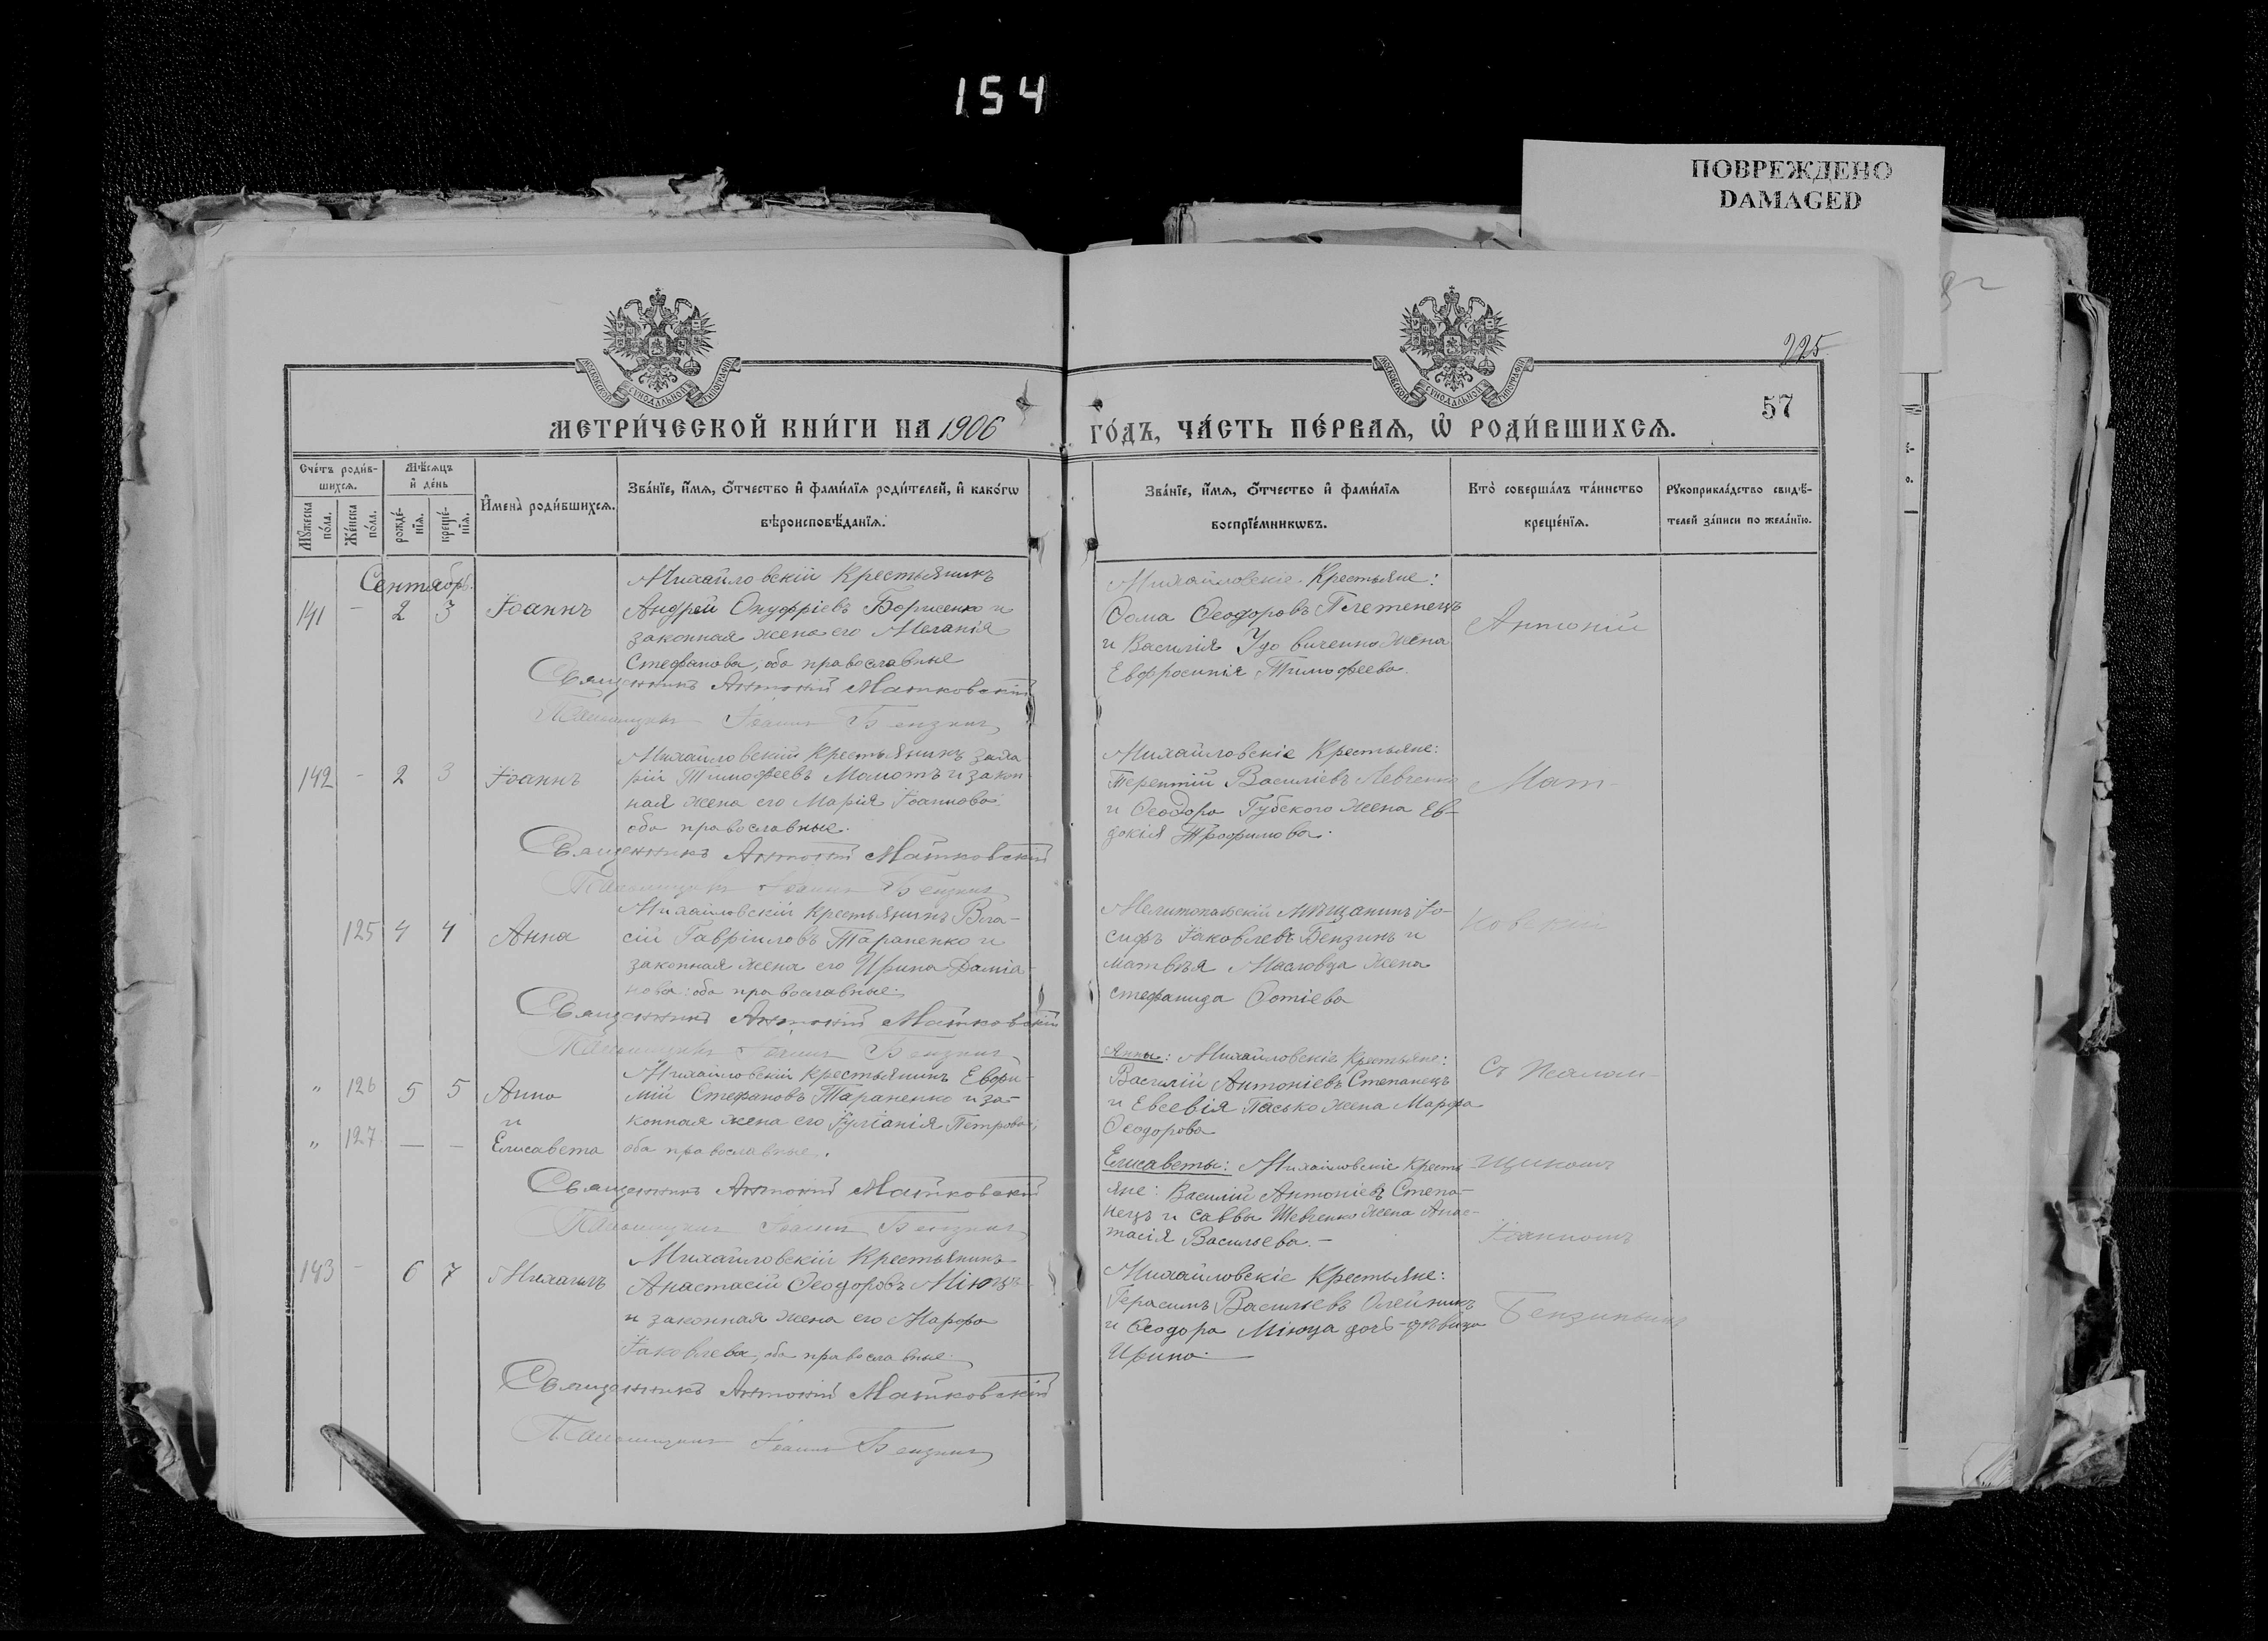 154
ПОВРЕЖДЕНО
DAMAGED
225
57
МОСКОВСКОЙ СѴНОДАЛЬНОЙ ТИПОГРАФІИ
МОСКОВСКОЙ СѴНОДАЛЬНОЙ ТИПОГРАФІИ
МЕТРИ́ЧЕСКОЙ КНИ́ГИ НА 1906
ГО́ДЪ, ЧА́СТЬ ПЕ́РВАѦ, Ѡ҆ РОДИ́ВШИХСѦ.
Сче́тъ роди́в-
шихсѧ.
Мѣ́сѧцъ
и҆ де́нь
Мꙋ́жеска по́ла.
Же́нска по́ла.
рожде́-
нїѧ.
креще́-
нїѧ.
И҆мена̀ роди́вшихсѧ.
Зва́нїе, и҆́мѧ, ѻ҆́тчество и҆ фами́лїѧ роди́телей, и҆ како́гѡ
вѣроисповѣ́данїѧ.
Зва́нїе, и҆́мѧ, ѻ҆́тчество и҆ фами́лїѧ
воспрїе́мникѡвъ.
Кто̀ соверша́лъ та́инство
креще́нїѧ.
Рꙋкоприкла́дство свидѣ́-
телей за́писи по жела́нїю.
Сентябрь.
141 - 2 3 Іоаннъ
Михайловскій крестьянинъ
Андрей Онуфріевъ Борисенко и
законная жена его Меланія
Стефанова, оба православные
Священникъ Антоній Матковскій
Псаломщикъ Іоаннъ Бензинъ
Михайловскіе Крестьяне:
Ѳома Ѳеодоровъ Плетенецъ
и Василія Удовиченко жена
Евфросинія Тимофеева.
Антоній
142 - 2 3 Іоаннъ
Михайловскій крестьянинъ Заха-
рій Тимофеевъ Мамотъ и закон-
ная жена его Марія Іоаннова:
оба православные.
Священникъ Антоній Матковскій
Псаломщикъ Іоаннъ Бензинъ
Михайловскіе Крестьяне:
Терентій Василіевъ Левченко
и Ѳеодора Губского жена Ев-
докія Трофимова.
Мат-
125 4 4 Анна
Михайловскій крестьянинъ Вла-
сій Гавріиловъ Тараненко и
законная жена его Ирина Даміа-
нова: оба православные.
Священникъ Антоній Матковскій
Псаломщикъ Іоаннъ Бензинъ
Мелитопольскій мѣщанинъ Іо-
сифъ Іаковлевъ Бензинъ и
Матвѣя Масловца жена
Стефанида Фотіева
ковскій
" 126 5 5 Анна
и
" 127 - - Елисавета
Михайловскій крестьянинъ Евфи-
мій Стефановъ Тараненко и за-
конная жена его Іуліанія Петрова;
оба православные.
Священникъ Антоній Матковскій
Псаломщикъ Іоаннъ Бензинъ
Анны: Михайловскіе Крестьяне:
Василій Антоніевъ Степанецъ
и Евсевія Пасько жена Марфа
Ѳеодорова
Елисаветы: Михайловскіе Кресть-
яне: Василій Антоніевъ Степа-
нецъ и Саввы Шевченко жена Анас-
тасія Васильева.-
Съ Псалом-
щикомъ
Іоанномъ
143 - 6 7 Михаилъ
Михайловскій Крестьянинъ
Анастасій Ѳеодоровъ Міюца
и законная жена его Марфа
Іаковлева, оба православные.
Священникъ Антоній Матковскій
Псаломщикъ Іоаннъ Бензинъ
Михайловскіе Крестьяне:
Герасимъ Васильевъ Олейникъ
и Ѳеодора Міюца дочь-дѣвица
Ирина.
Бензинымъ